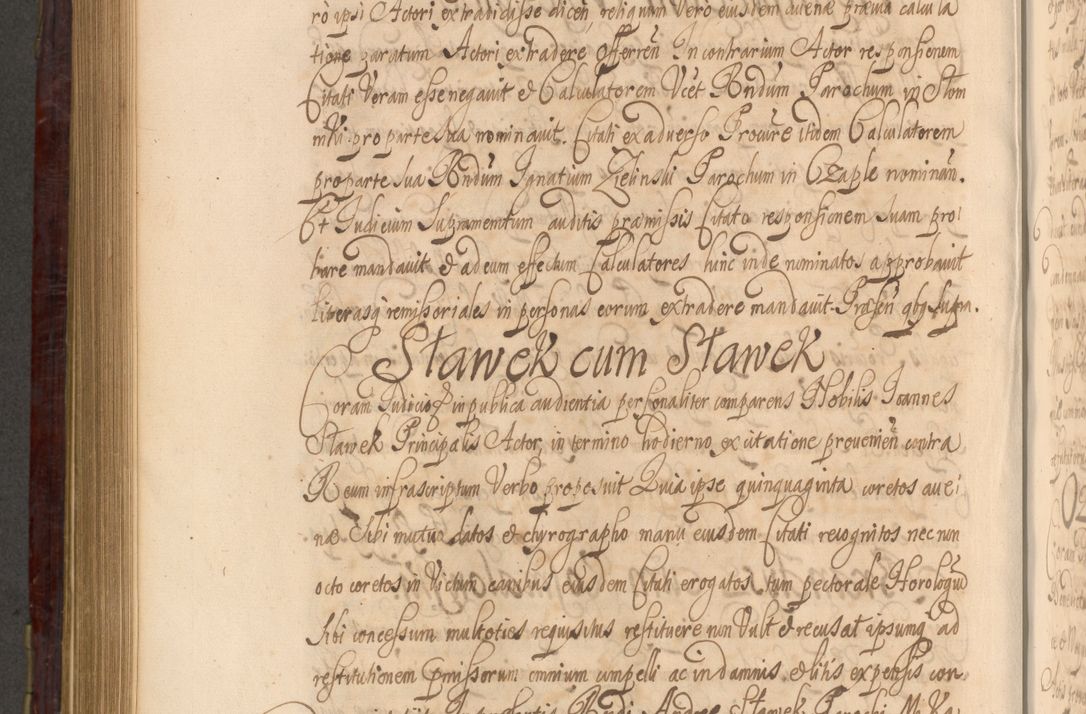 rò ipsi Actori extradidisse dicen, reliquum Vero eiusdem avenæ prævia calcula
tione paratum Actori extradere offerreñ In contrarium Actor responsionem
Citati Veram esse negavit et Calculatorem Vcèt Rndum Parochum in Słom
niki pro parte sua nominavit. Citati ex adverso Procure itidem Calculatorem
pro parte sua Rndum Ignatium Zielinski Parochum in Czaple nominan.
Et Judicium Supramentum auditis præmissis Citato responsionem suam pro:
bare mandavit & ad eum effectum Calculatores hinc inde nominatos approbavit
literasq remissoriales in personas eorum extradere mandavit. Præsen qbg supra.
Sławek cum Sławek
Coram Judicio & in publica audientia personaliter comparens Nobilis Joannes
Sławek Principalis Actor, in termino hodierno ex citatione provenien contra
Reum infrascriptum Verbo proposuit Quia ipse quinquaginta coretos ave:
næ Sibi mutuo datos et chyrographo manu eiusdem Citati recognitos nec non
octo coretos in Victum canibus eiusdem Citati erogatos, tum pectorale Horologiu
Sibi concessum multoties requisitus restituere non Vult & recusat ipsumq ad
restitutionem præmissorum omnium compelli ac in damnis, & litis expensis con-
Andreæ Sławek Parochi